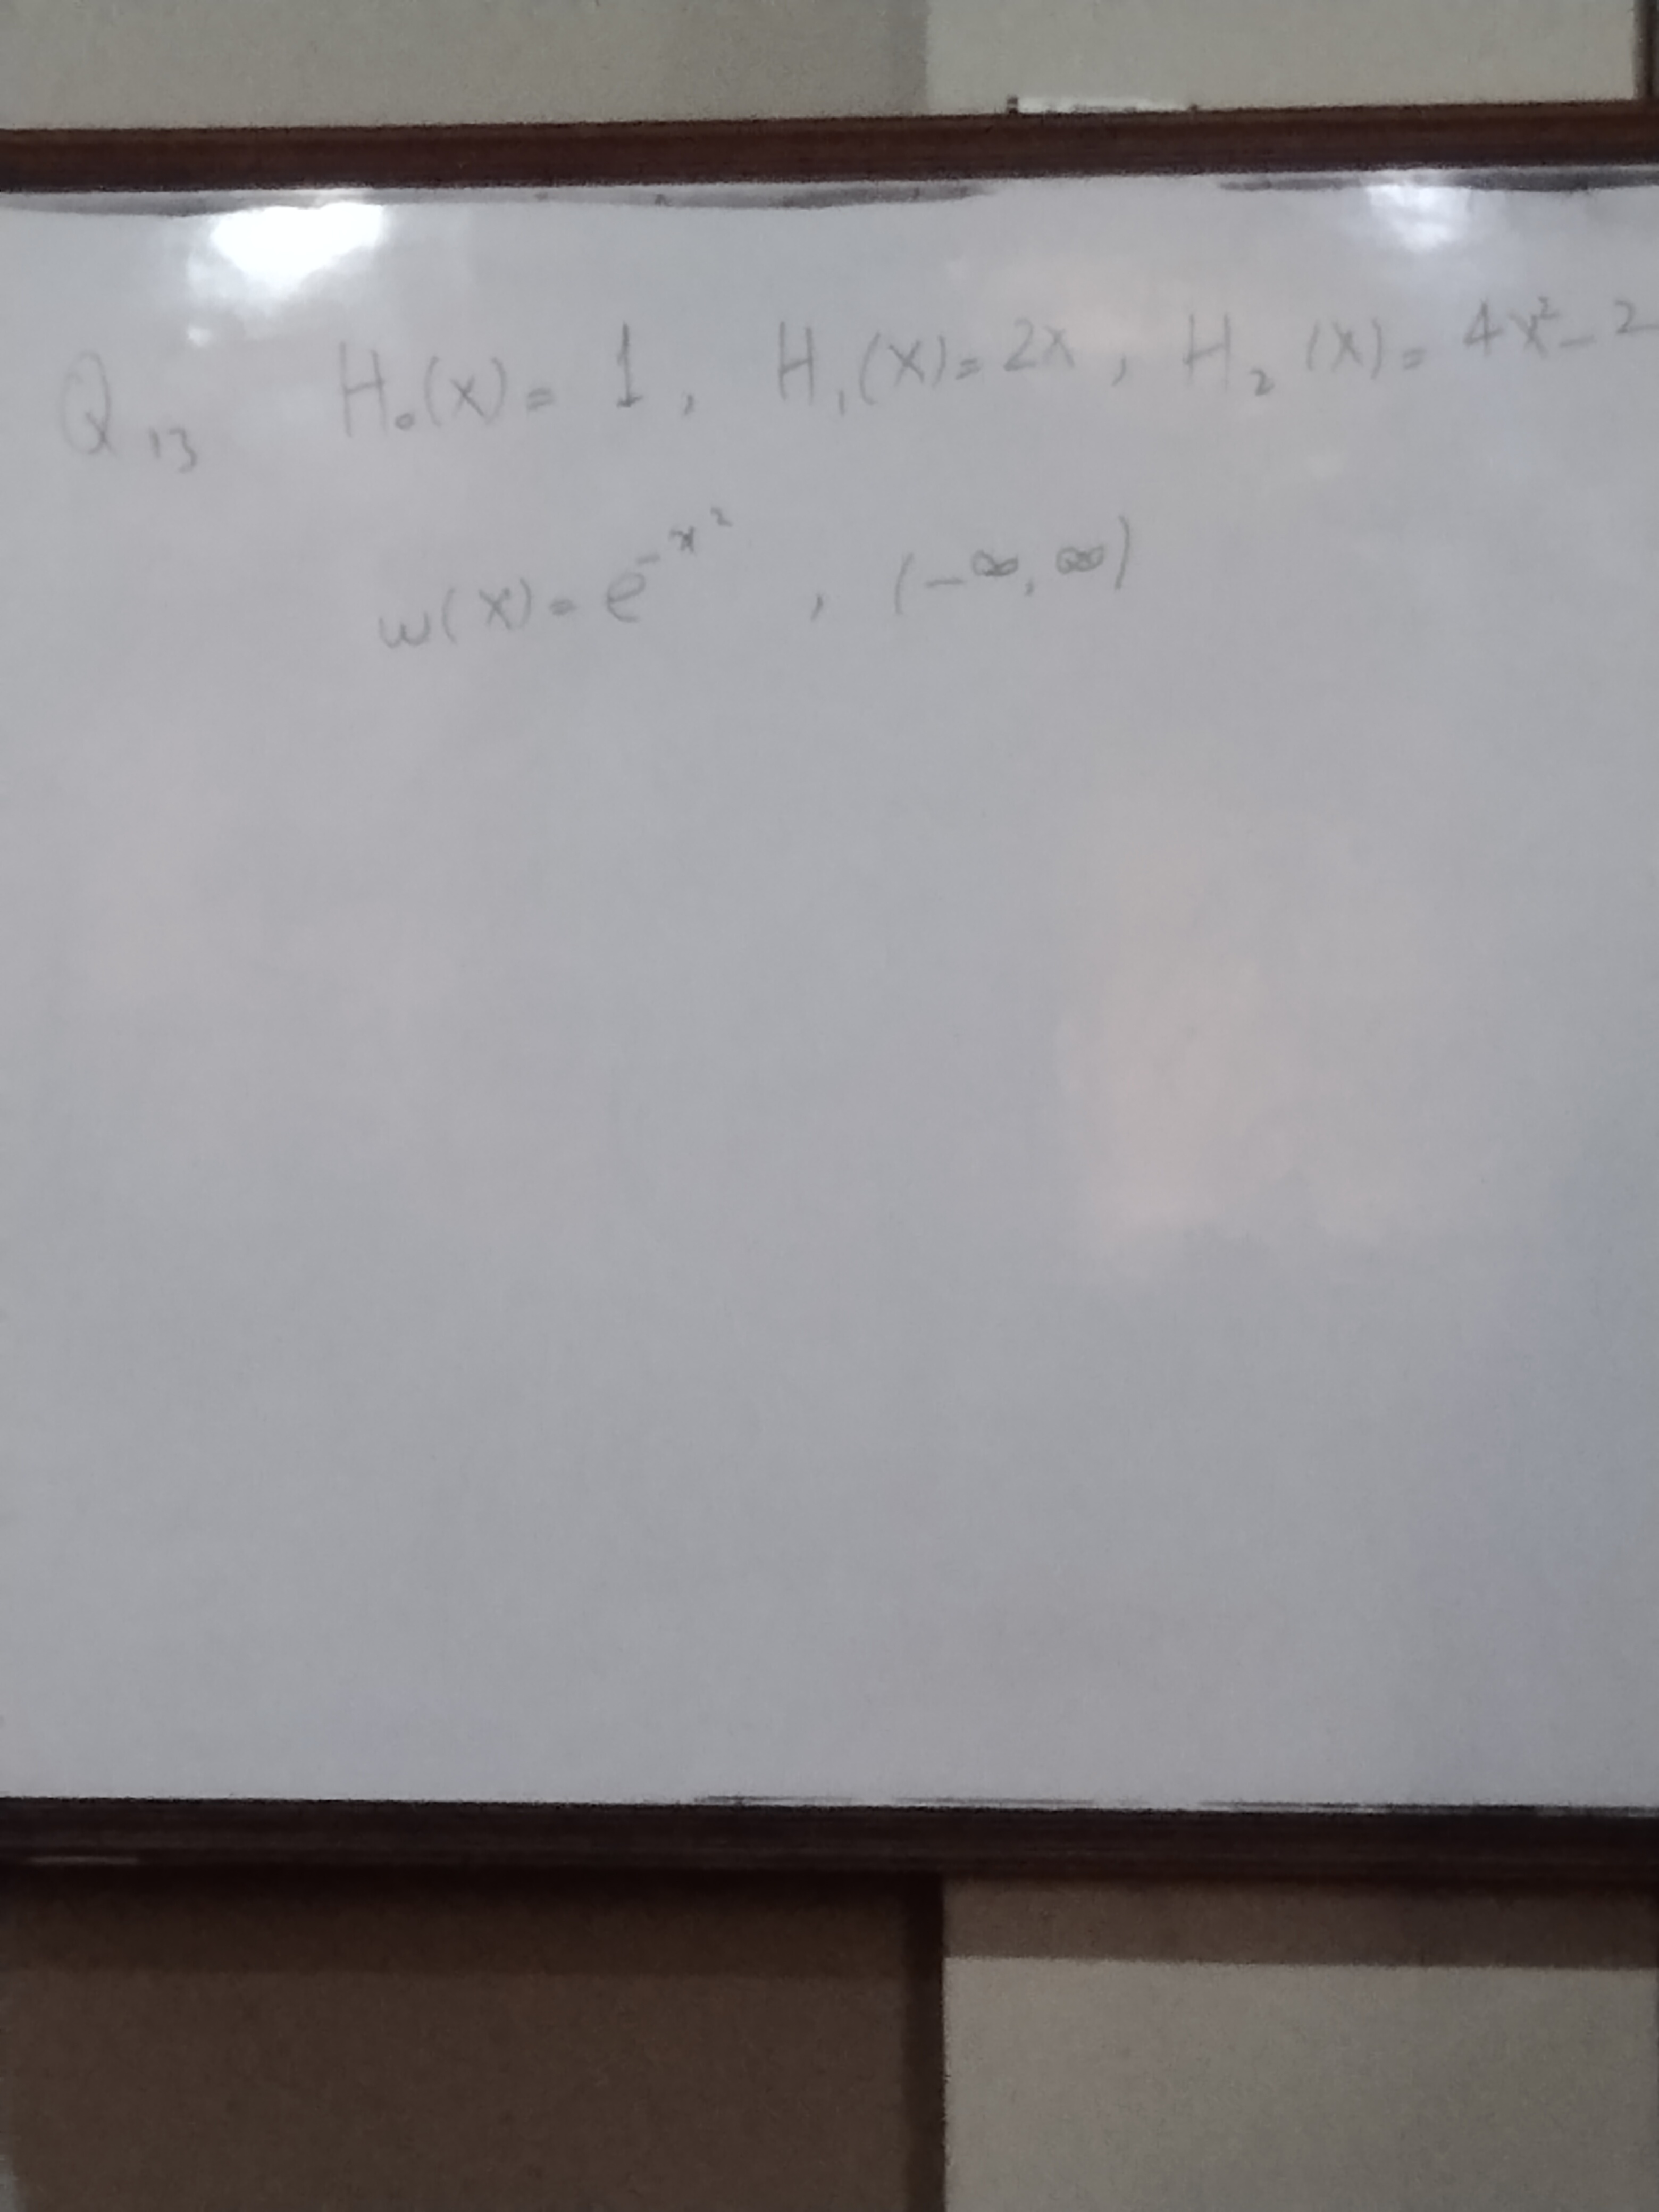 Q13 H₀(x) = 1, H₁(x) = 2x, H₂(x) = 4x² - 2
w(x) = e^{-x²}, (-∞, ∞)